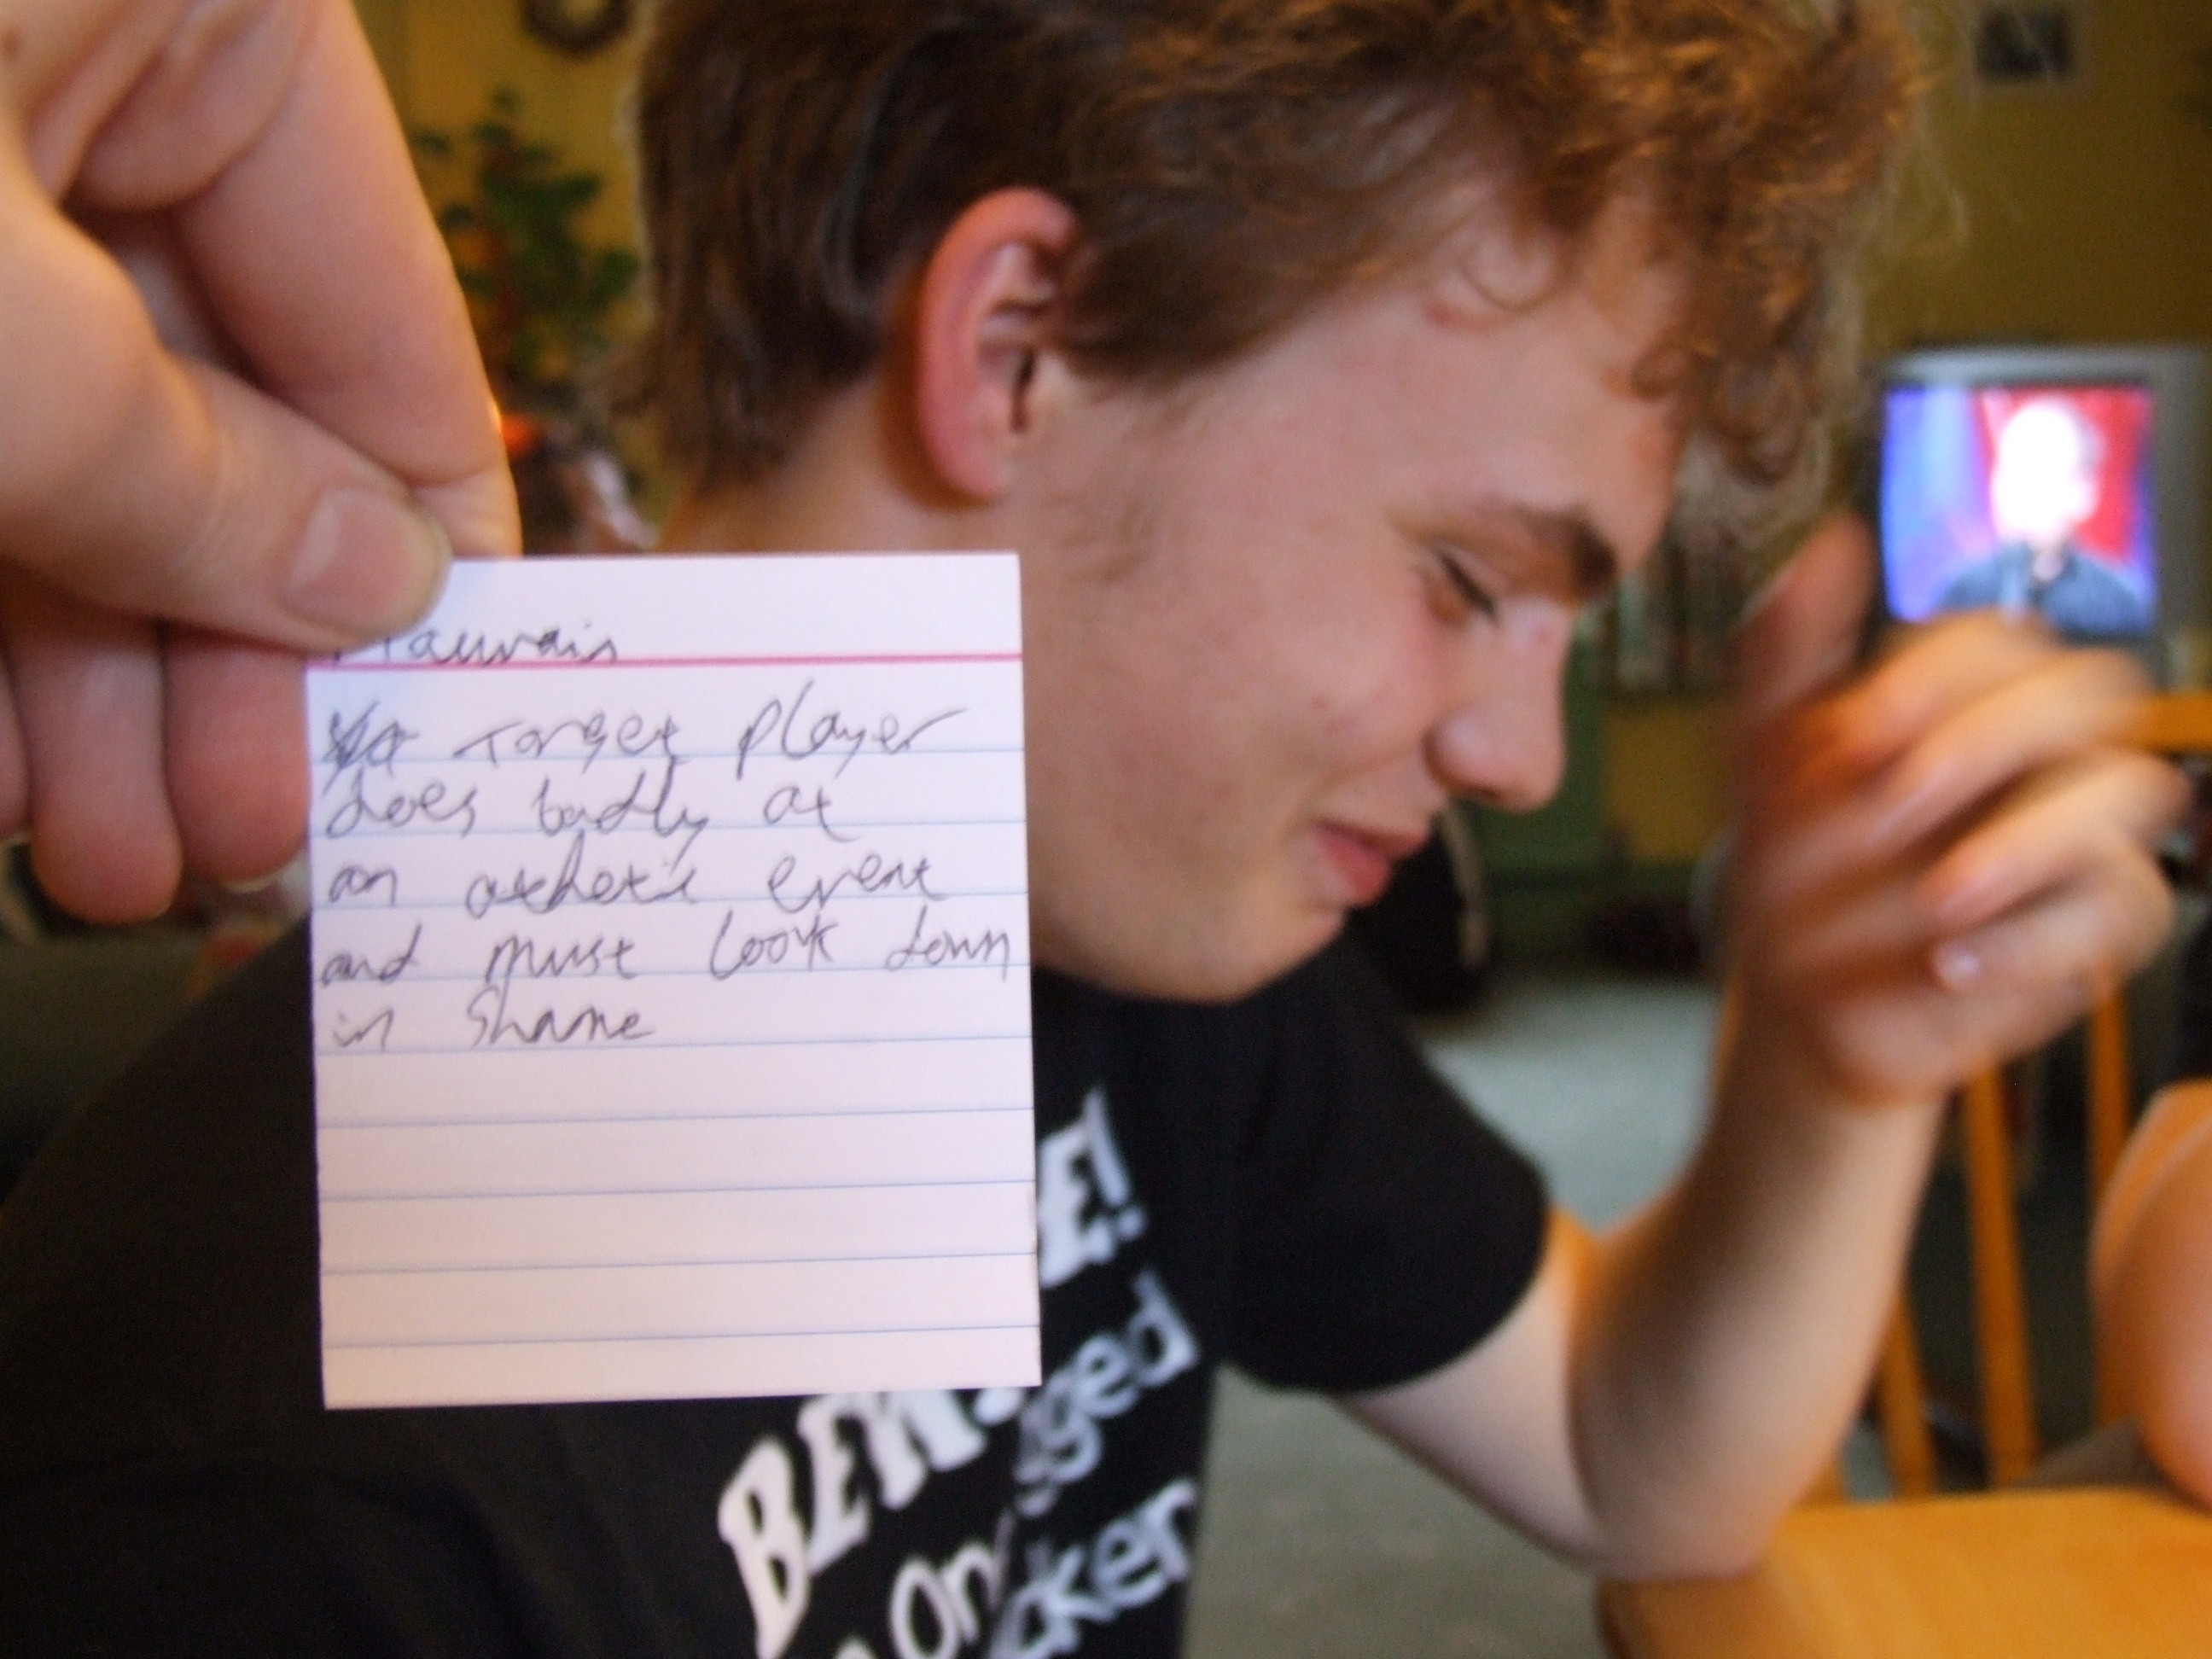 Mauvais
Target player
does badly at
an athetic event
and must look down
in shame
BEWARE!